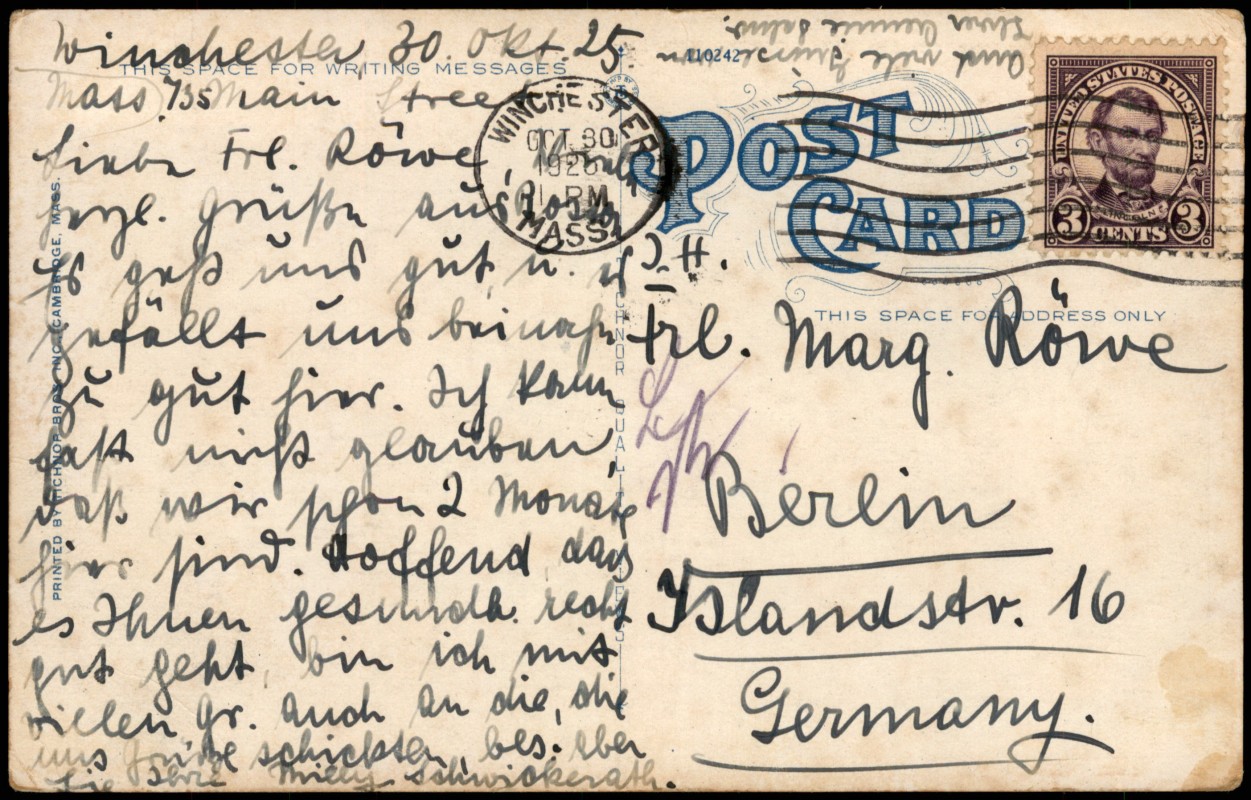 Winchester, 30. Okt. 25.
THIS SPACE FOR WRITING MESSAGES
Mass. 735 Main Street
Liebe Frl. Röwe,
herzl. Grüße aus
Es geht uns gut, u. es
gefällt uns beinahe
zu gut hier. Ich kann
fast nicht glauben,
daß wir schon 2 Monate
hier sind. Hoffend, dass
es Ihnen gesundh. recht
gut geht, bin ich mit
vielen Gr. auch an die, die
uns Grüße schickten, bes. aber
Sie Ihre Willy Schwickerath.
und viele Grüsse von
Ihrer
PRINTED BY TICHNOR BROS. INC. CAMBRIDGE, MASS.
110242
POST
CARD
WINCHESTER
OCT. 30
1925
PM
MASS.
UNITED STATES POSTAGE
LINCOLN
3 CENTS 3
THIS SPACE FOR ADDRESS ONLY
Frl. Marg. Röwe
Berlin
Islandstr. 16
Germany.